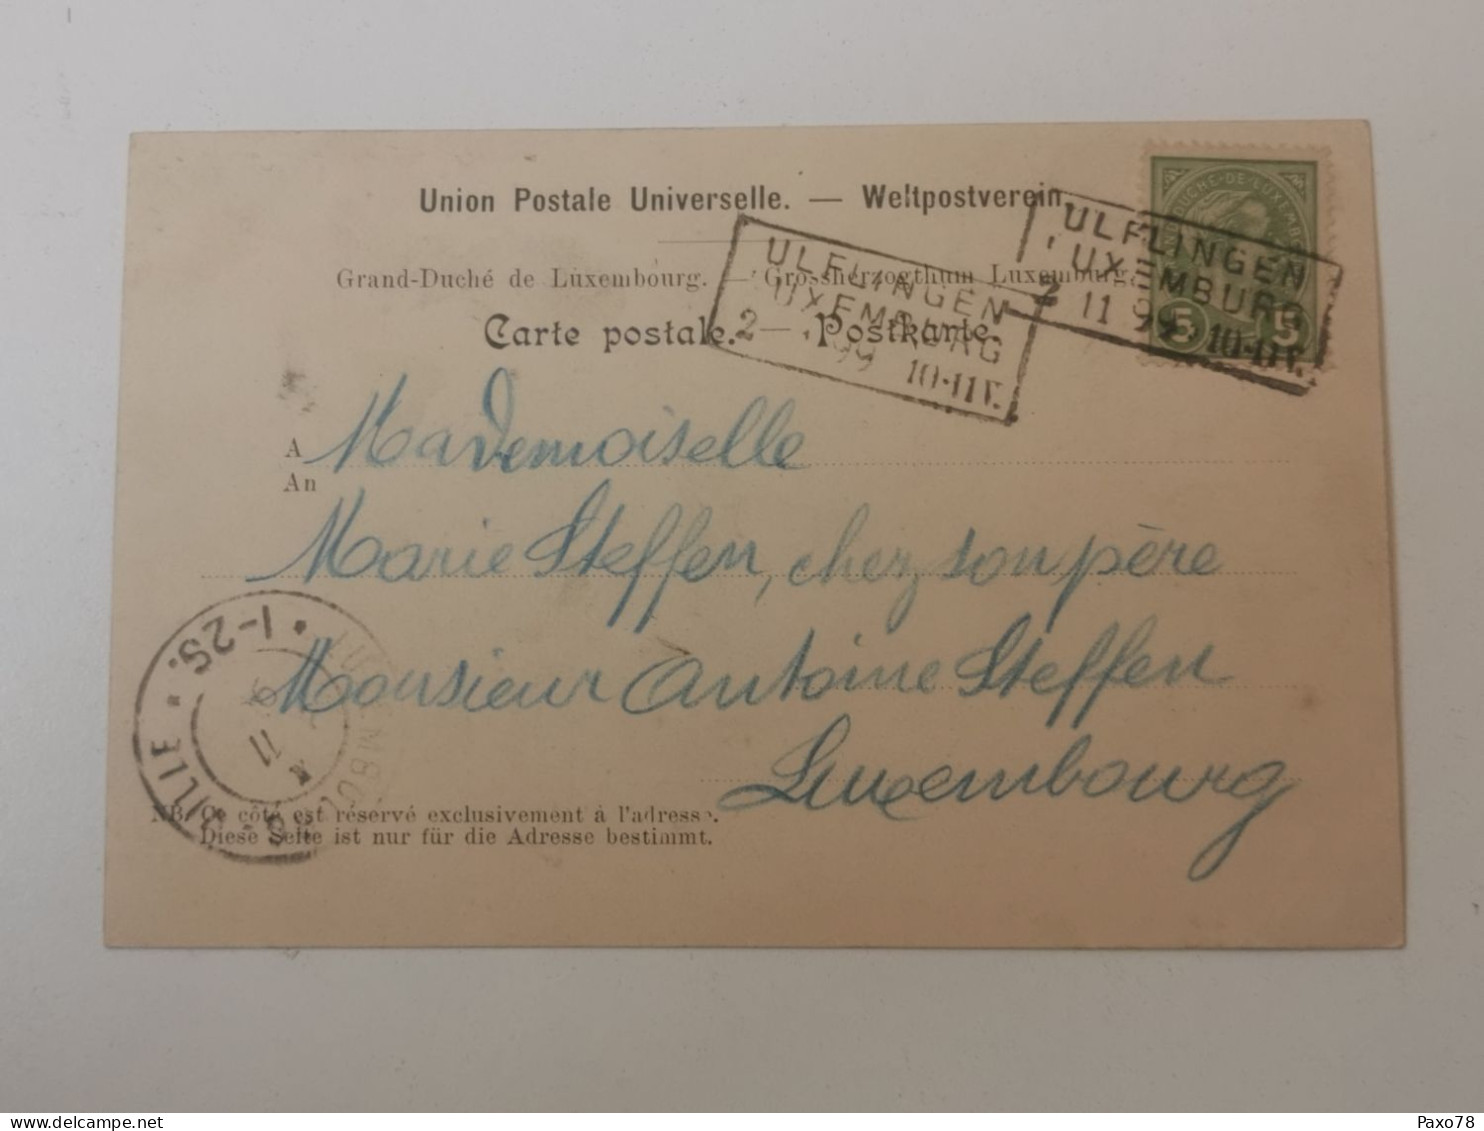 Union Postale Universelle. — Weltpostverein.
Grand-Duché de Luxembourg. — Grossherzogthum Luxemburg.
Carte postale. — Postkarte.
ULFLINGEN
UXEMBURG
2 99 10-11V.
DUCHÉ-DE-LUXEMB
5 5
ULFLINGEN
UXEMBURG
2 11 99 10-11V.
A Mademoiselle
An
Marie Steffen, chez son père
Monsieur Antoine Steffen
Luxembourg
1-2S.
11
NB. Ce côté est réservé exclusivement à l'adresse.
Diese Seite ist nur für die Adresse bestimmt.
Paxo78